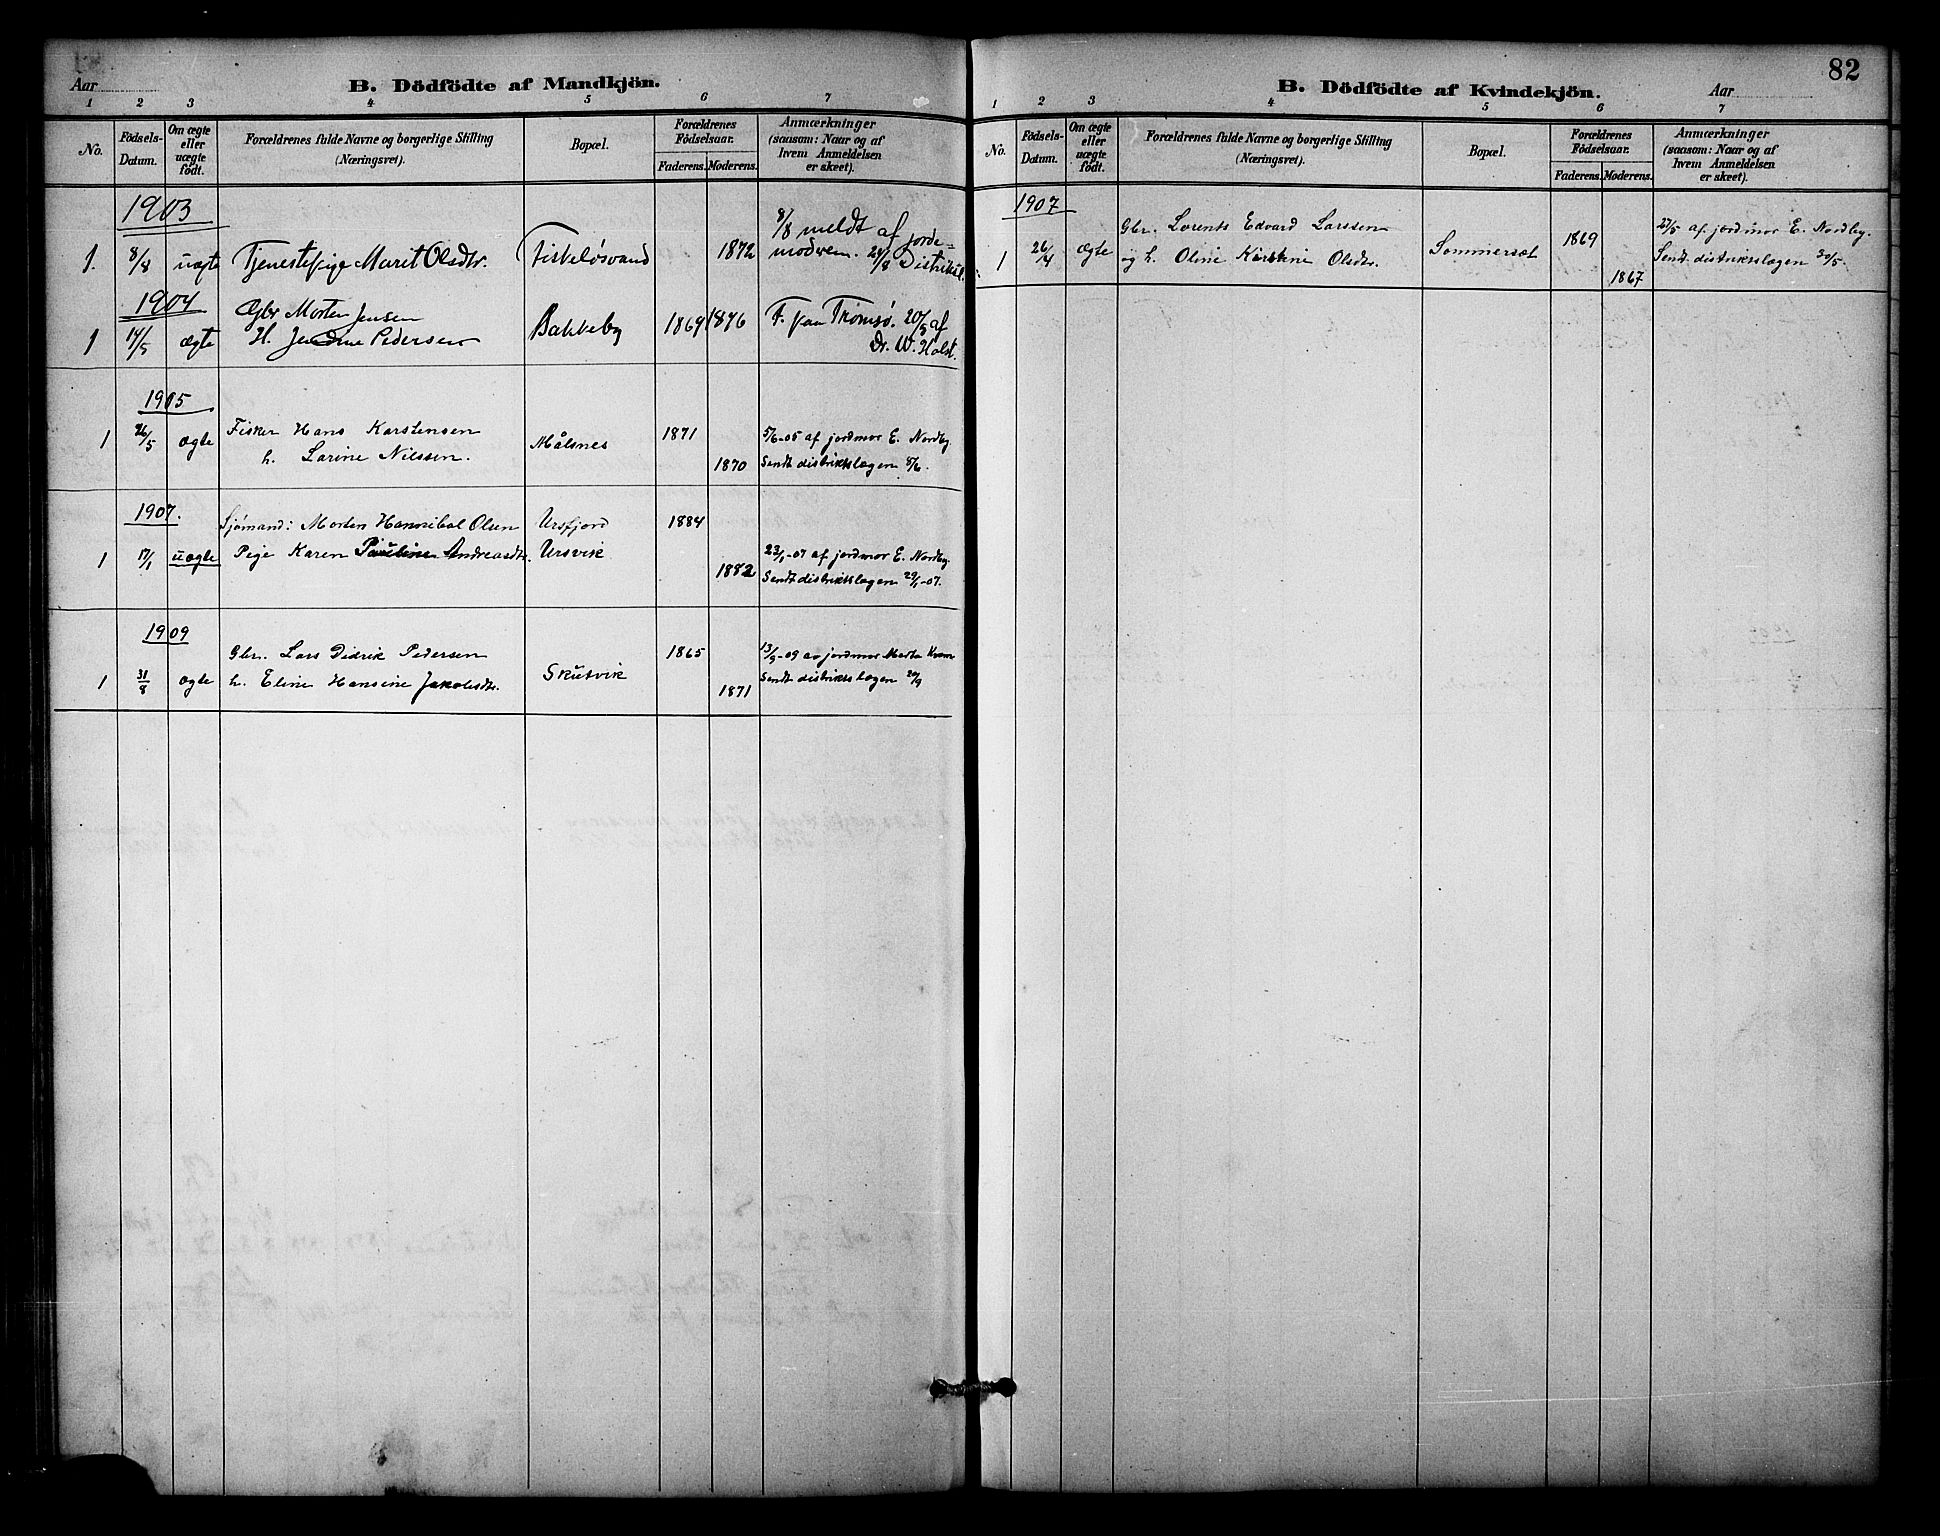 Aar
B. Dödfödte af Mandkjön.
1 2 3 4 5 6 7
No.
Födsels-Datum.
Om ægte eller uægte födt.
Forældrenes fulde Navne og borgerlige Stilling (Næringsvei).
Bopæl.
Forældrenes Födselsaar.
Faderens. Moderens.
Anmærkninger (saasom: Naar og af hvem Anmeldelsen er skeet).
1903
1. 8/8 uægte Tjenestepige Marit Olsdtr. Fiskeløsvand 1872 8/8 meldt af jorde-
modren. 24/8 Distriktsl.
1904
1 14/5 ægte Gbr Morten Jensen
H. Jendine Pedersen Bakkeby 1869 1876 F. paa Tromsø. 20/5 af
Dr. W. Holst.
1905
1 26/5 ægte Fisker Hans Karstensen
h. Larine Nilssen. Målsnes 1871 1870 5/6-05 af jordmor E. Nordby.
Sendt distriktslægen 8/6.
1907.
Sjømand: Morten Hannibal Olsen Ursfjord 1884
1 17/1 uægte Pige Karen Pauline Andreasdtr. Ursvik 1882 23/1-07 af jordmor E. Nordby.
Sendt distriktslægen 29/1-07.
1909
1 31/8 ægte Gbr. Lars Didrik Pedersen
h. Eline Hansine Jakobsdtr. Skutvik 1865 1871 13/9-09 av jordmor Marta Kvam
Sendt distriktslægen 20/9
82
B. Dödfödte af Kvindekjön.
Aar
1 2 3 4 5 6 7
No.
Födsels-Datum.
Om ægte eller uægte födt.
Forældrenes fulde Navne og borgerlige Stilling (Næringsvei).
Bopæl.
Forældrenes Födselsaar.
Faderens. Moderens.
Anmærkninger (saasom: Naar og af hvem Anmeldelsen er skeet).
1907
1 26/4 ægte Gbr. Lorents Edvard Larssen
og h. Oline Kirstine Olsdtr. Sommersæt 1869 1867 27/5 af jordmor E. Nordby.
Sendt distriktslægen 30/5.